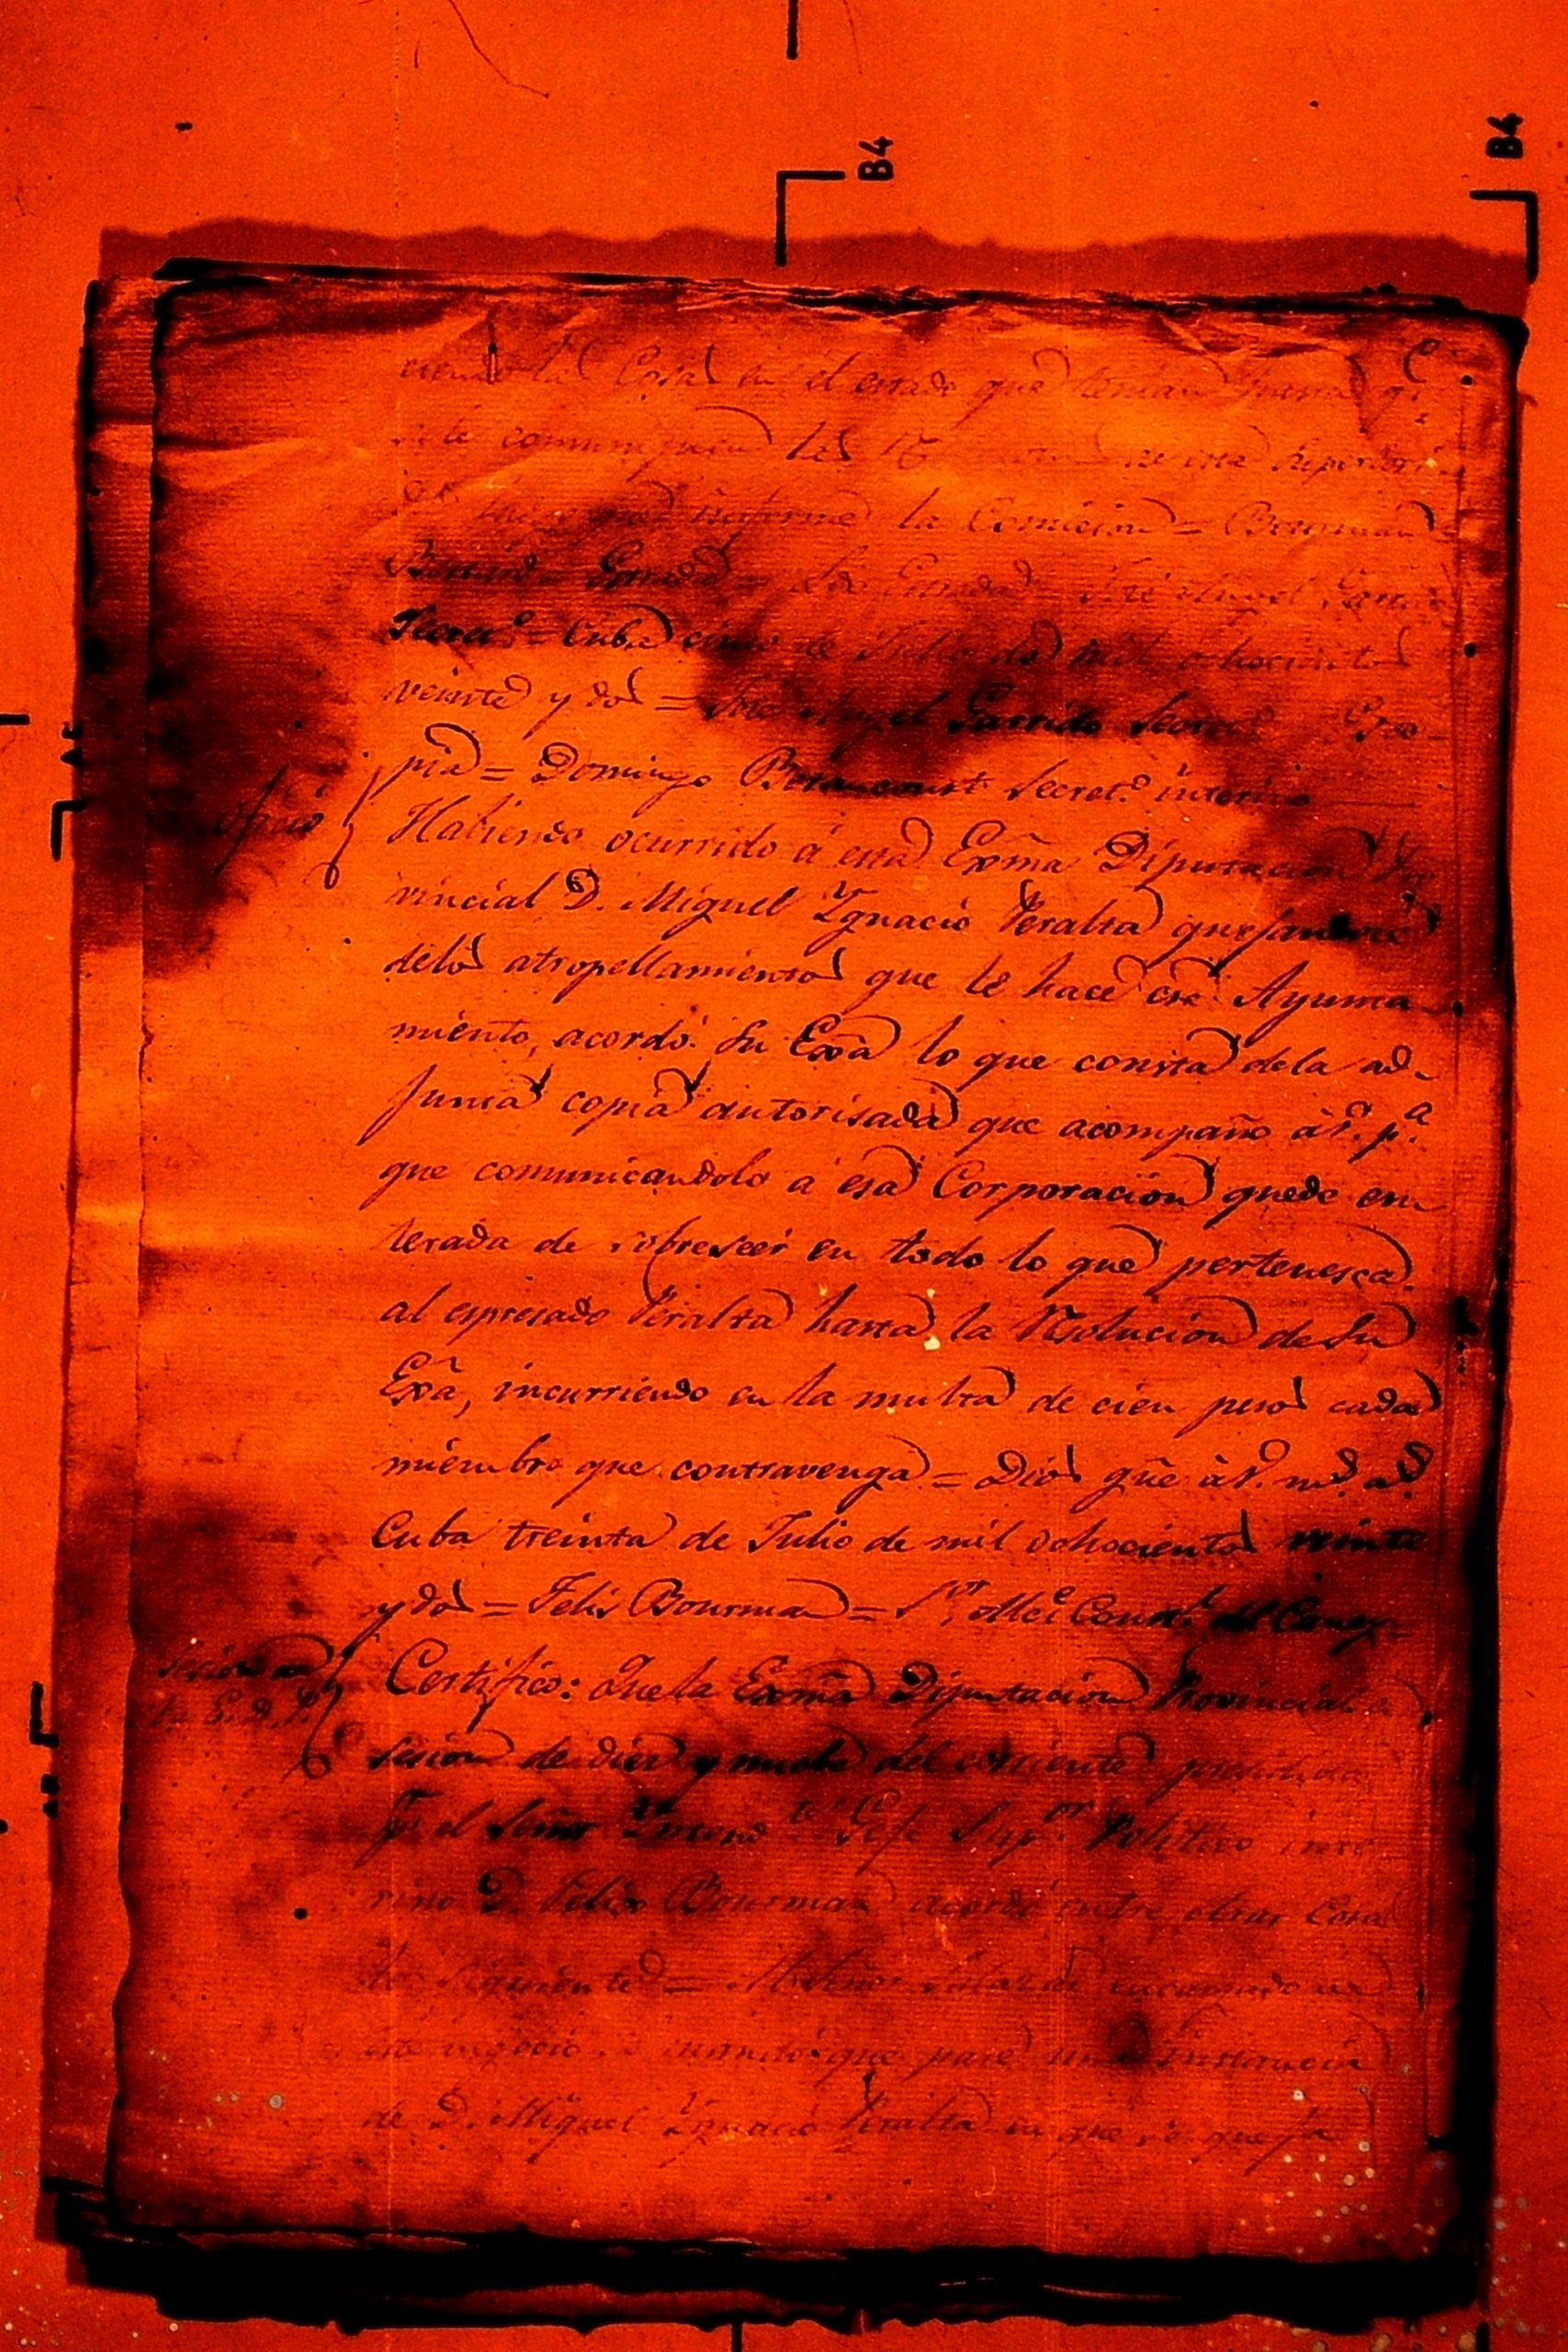 B4
B4
la Cosa en el estado que tenian
se le comuniquen las de esta Superiori
informe la Comicion =
José Angel
Secret.º = Cuba cinco de Julio de mil ochocientos
veinte y dos = José Angel Garrido Secret.º
pia = Domingo Betancourt Secret.º interino
Oficio
Habiendo ocurrido á esta Exma Diputacion Pro
vincial D. Miguel Ygnacio Peralta quejandose
delos atropellamientos que le hace ese Ayunta
miento, acordó Su Exa lo que consta dela ad-
junta copia autorisada que acompaño á V. p.a
que comunicandolo a esa Corporacion quede en
terada de sobreseer en todo lo que pertenesca
al espresado Peralta hasta la Resolucion de Su
Exa, incurriendo en la multa de cien pesos cada
miembro que contravenga = Dios gũe á V. m.s a.s
Cuba treinta de Julio de mil ochocientos veinte
y dos = Felis Bourman = S.or Alc.e Const.l del Caney
Certifico: Que la Exma Diputacion Provincial
sesion de diez y nueve del corriente presidida
el Señor Gefe Sup.or Politico inte
rino D. Felix Bourman acordó entre otras Cosas
siguiente = encargado de
este negocio se mandó que pase una instancia
de D. Miguel Ygnacio Peralta en que se queja